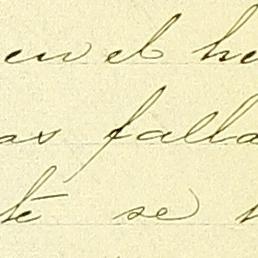 en el he
as falla
te se